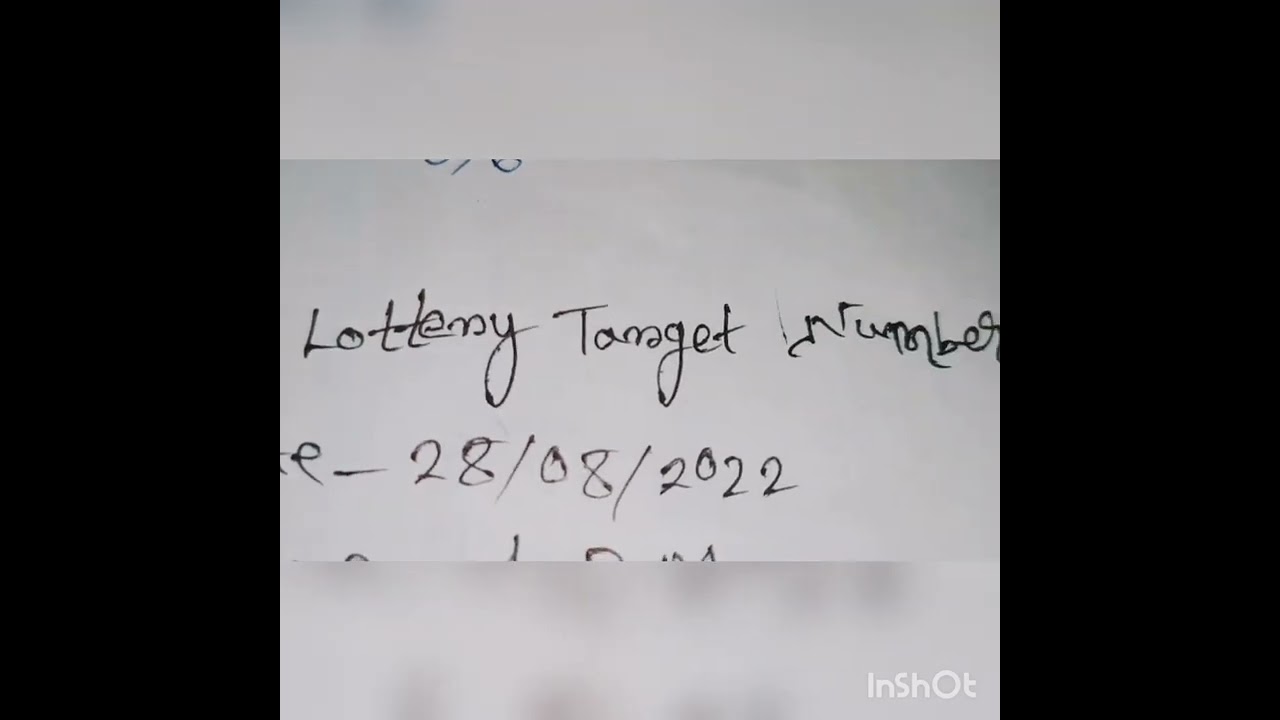 Lottery Target Number
e - 28/08/2022
InShOt